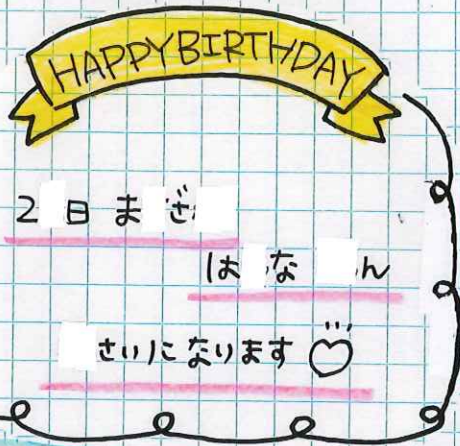 HAPPY BIRTHDAY
2 日 ま ざ
は な ん
さいになります♡